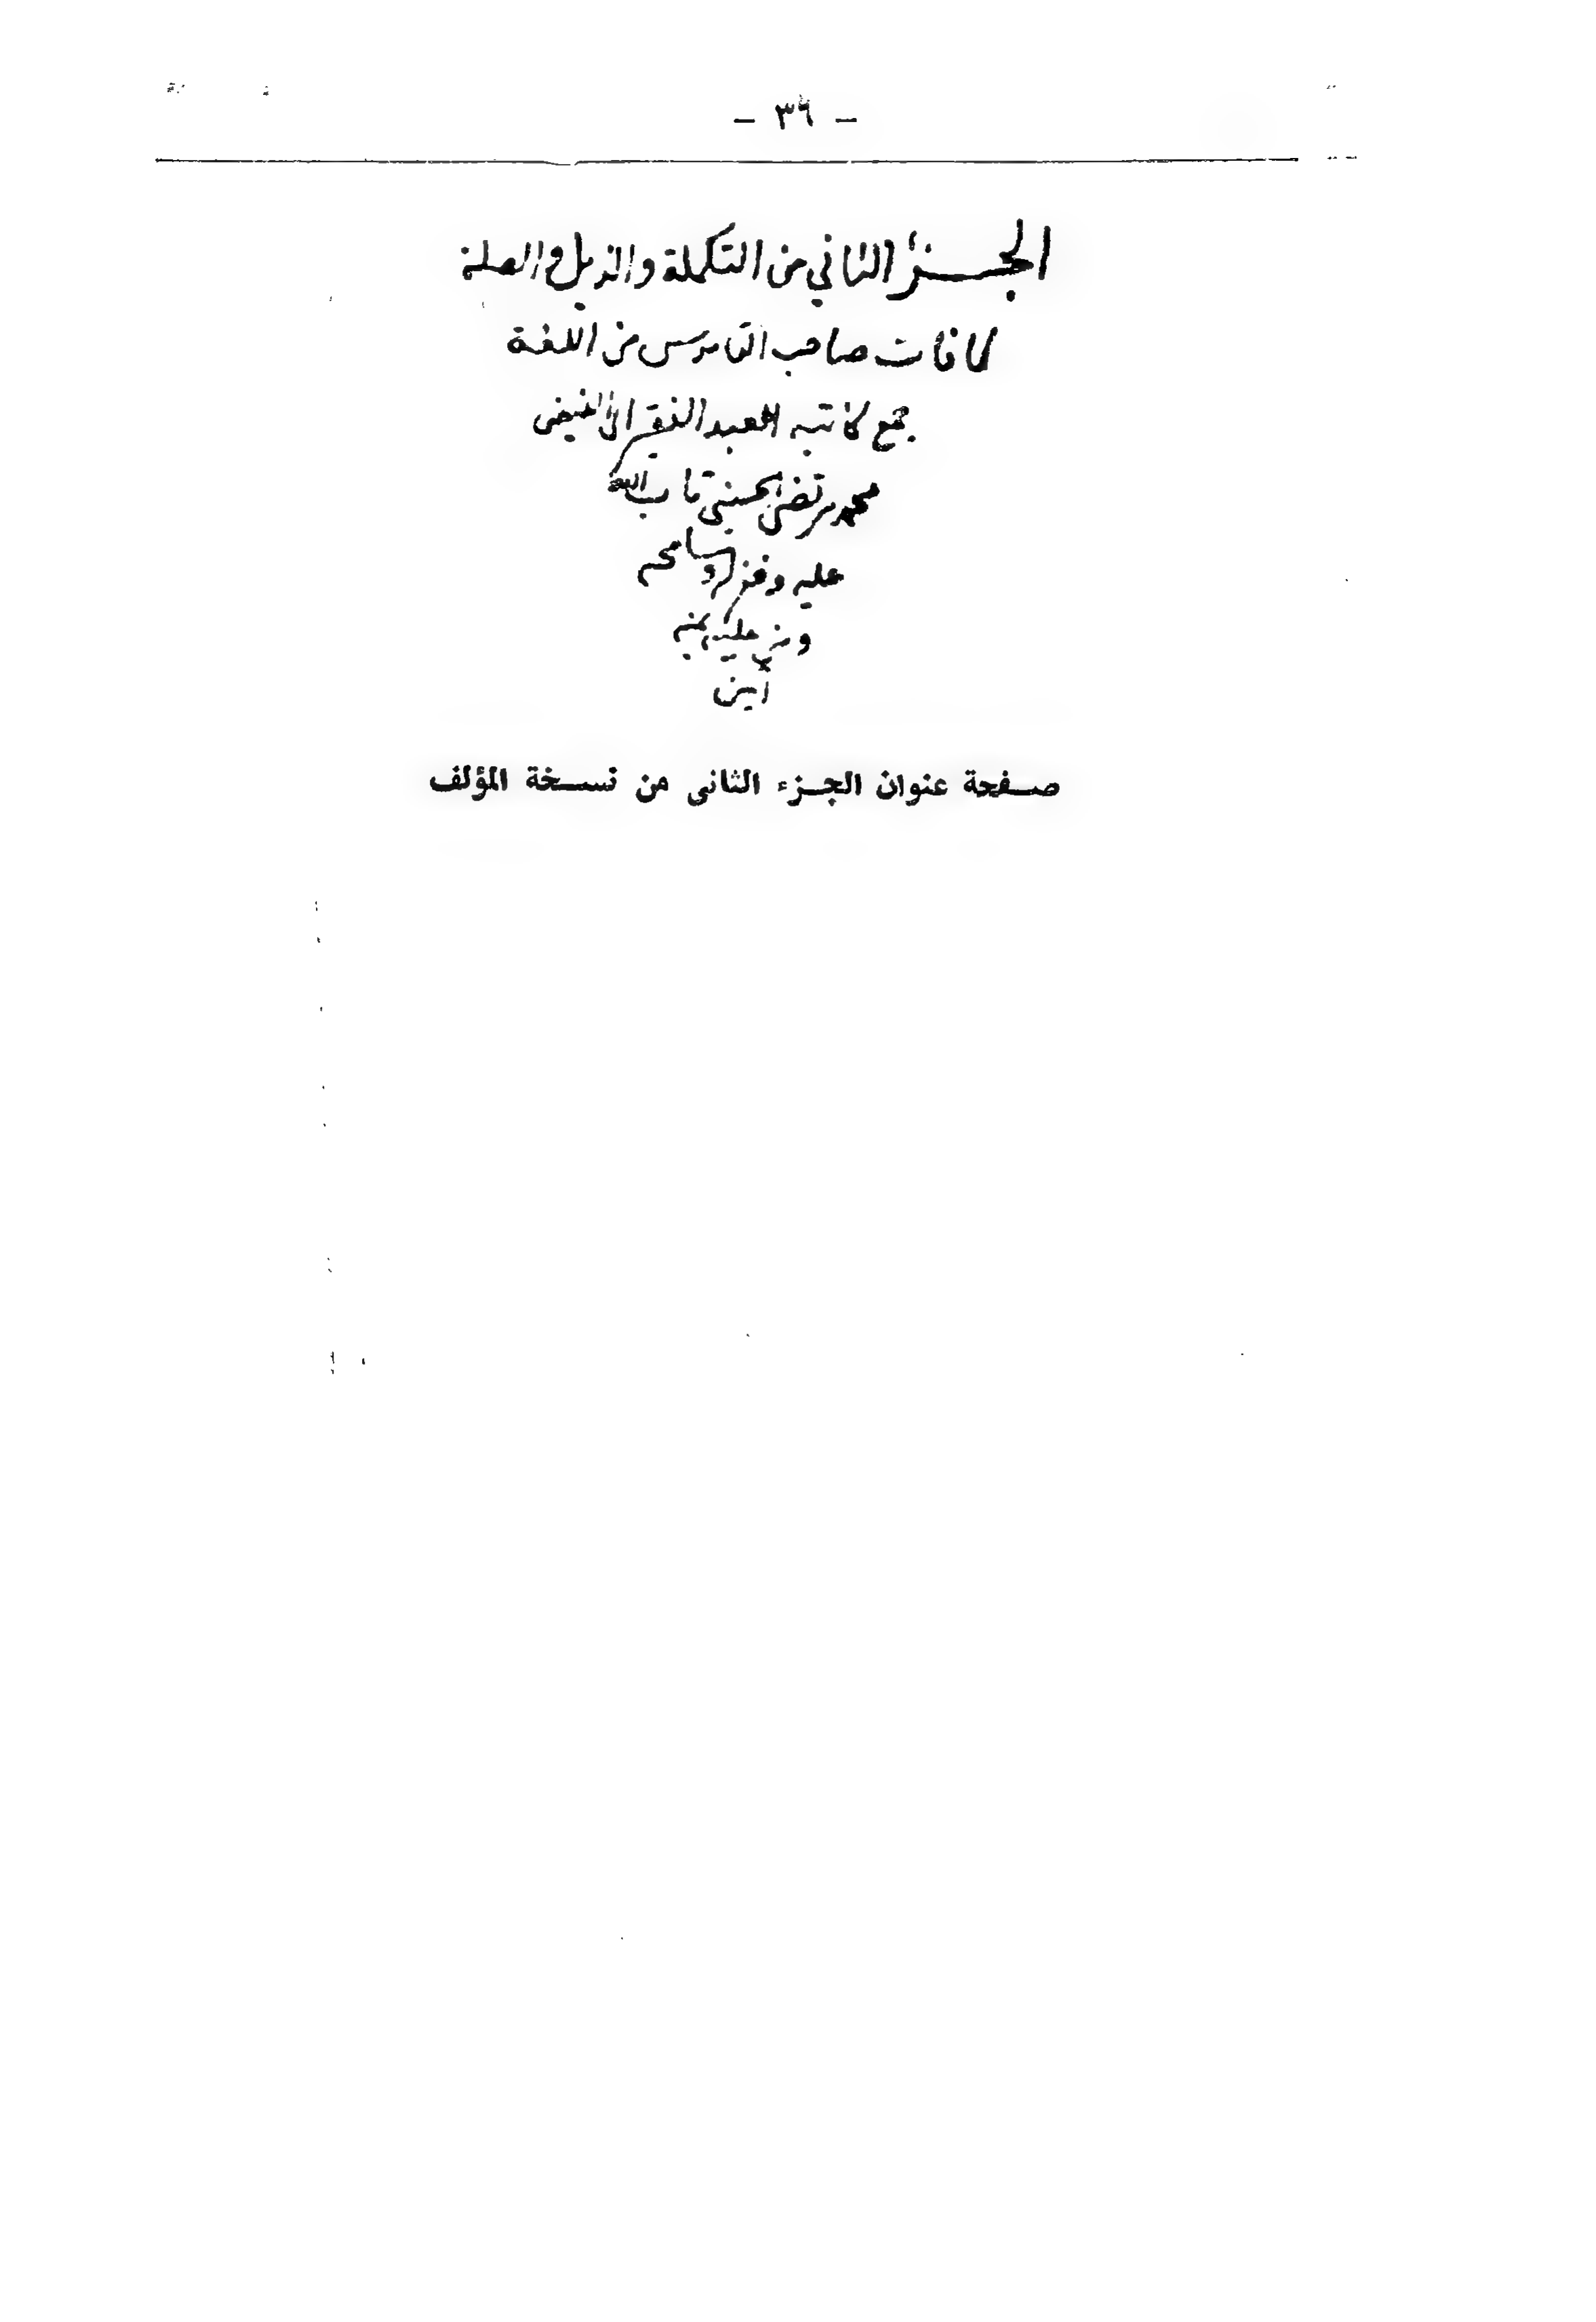 – ٣٦ –
الجزء الثاني من التكملة والذيل والصلة
لما فات صاحب القاموس من اللغة
جمع كاتبه العبد الفقير الى الفيض
محمد مرتضى الحسيني تاب الله
عليه وغفر له وسامحه
ومن عليه بمنه
آمين
صفحة عنوان الجزء الثانى من نسخة المؤلف